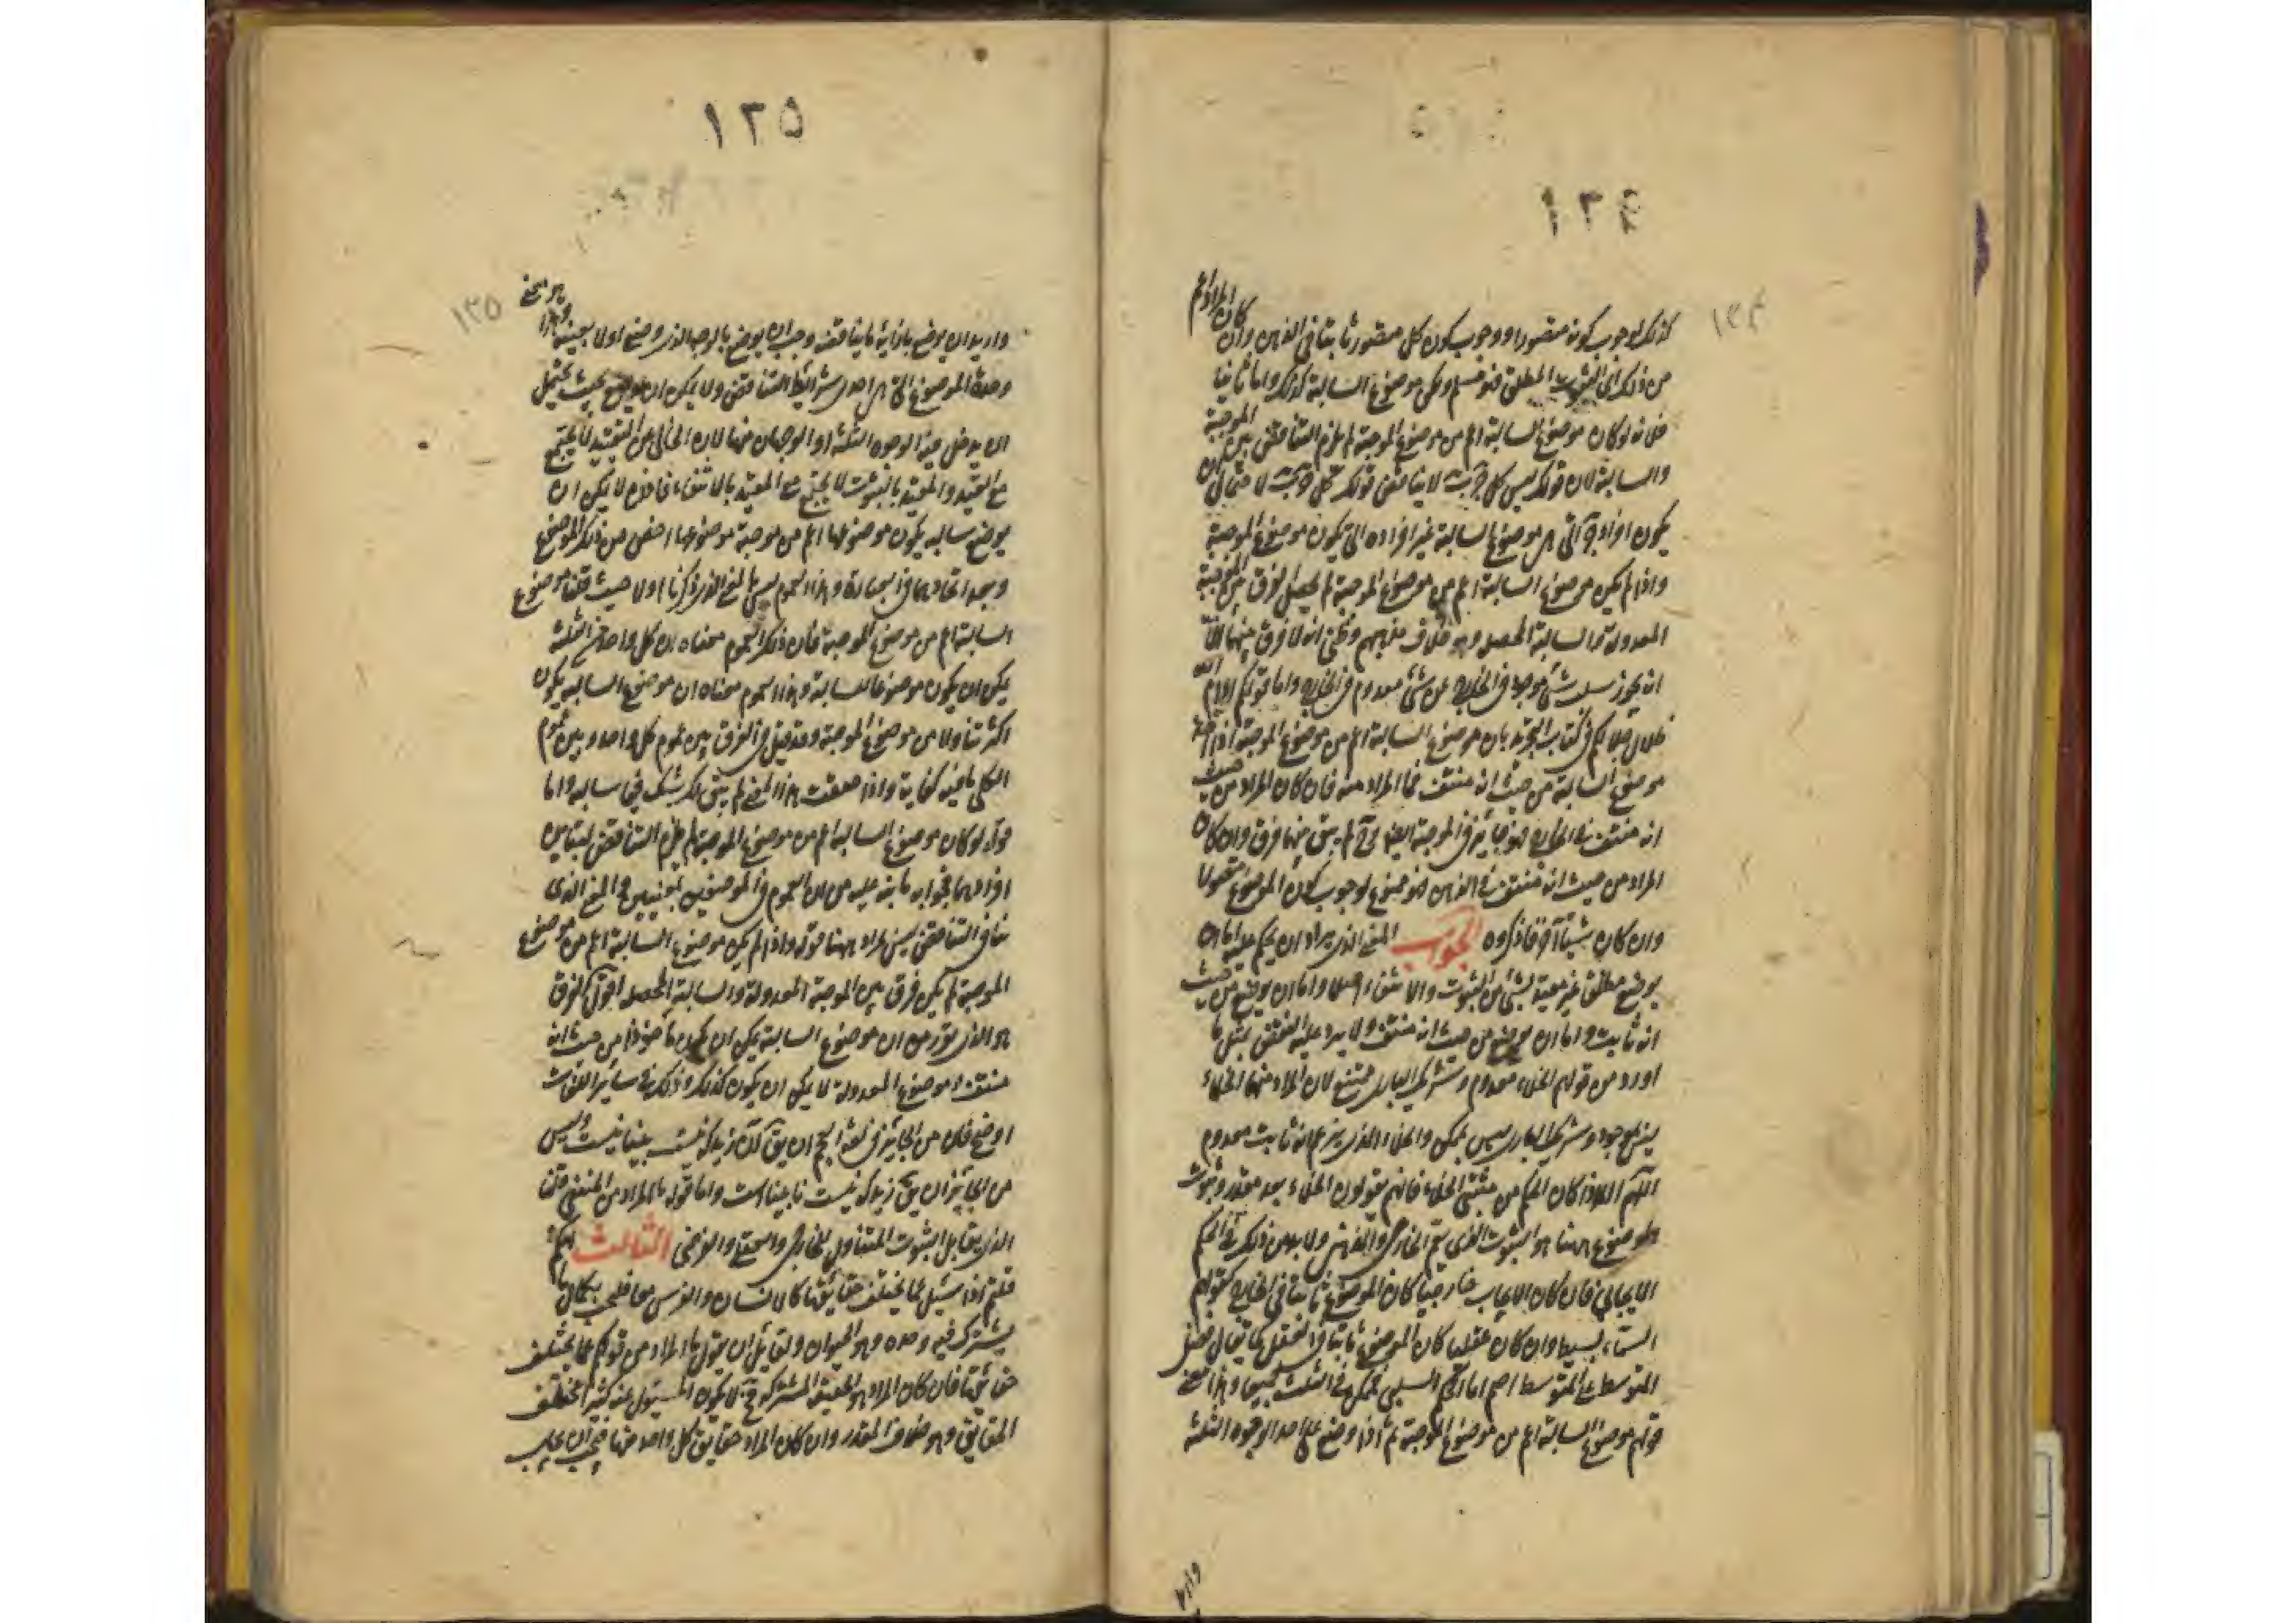 ١٣٤
كذلك لوجوب كونه متصورا ووجوب كون كل متصور ثابتا فى الذهن وان كان المراد اعم
من ذلك اى الثبوت المطلق فهو مسلم ولكن موضوع السالبة كذلك واما ثانيا
فلانه لو كان موضوع السالبة اعم من موضوع الموجبة لم يلزم التناقض بين الموجبة
والسالبة لان قولك ليس كل ج ب لا يناقض قولك كل ج ب لاحتمال ان
يكون افراد ج التى هى موضوع السالبة غير افراده التى يكون موضوع الموجبة
واذا لم يكن موضوع السالبة اعم من موضوع الموجبة لم يحصل الفرق بين الموجبة
المعدولة والسالبة المحصلة وهو خلاف مذهبهم وظنى انه لا فرق بينهما الا
انه يجوز سلب شئ موجود فى الخارج عن شئ معدوم فى الخارج واما قولكم ادام الله
ظلال جلالكم فى كتاب التجريد بان موضوع السالبة اعم من موضوع الموجبة اذا اخذ
موضوع السالبة من حيث انه منتف فما المراد منه فان كان المراد من حيث
انه منتف فى الخارج فهو جائز فى الموجبة ايضا فح لم يبق بينهما فرق وان كان
المراد من حيث انه منتف فى الذهن فهو ممنوع لوجوب كون الموضوع متصورا
وان كان شيئا آخر فاذكروه الجواب المنع الذى يراد ان يحكم عليه اما ان
يوضع مطلقا غير مقيد بشئ من الثبوت والانتفاء اصلا واما ان يوضع من حيث
انه ثابت واما ان يوضع من حيث انه منتف ولا يرد عليه النقض بمثل ما
اورد من قولهم الخلاء معدوم وشريك البارى ممتنع لان المراد منهما الخلاء
ليس بموجود وشريك البارى ليس بممكن والخلاء الذى يزعم انه ثابت معدوم
اللهم الا اذا كان الحكم من مثبتى الخلاء فانهم يقولون الخلاء بعد مقدر وثبوت
الموضوع ههنا هو الثبوت الذى يعم الخارجى والذهنى ولا بد من ذلك فى الحكم
الايجابى فان كان الايجاب خارجيا كان الموضوع ثابتا فى الخارج كقولهم
السماء بسيط وان كان عقليا كان الموضوع ثابتا فى العقل كما يقال فصل
المتوسط على المتوسط اصم اما الحكم السلبى فممكن فى الثلث جميعا وهذا معنى
قولهم موضوع السالبة اعم من موضوع الموجبة ثم اذا وضع على احد الوجوه الثلثة
١٣٥
١٣٥
واريد ان يوضع بازائه ما يناقضه وجب ان يوضع بالوجه الذى وضع اولا بعينه وهذا هو معنى
وحدة الموضوع التى هى احدى شرايط التناقض ولا يمكن ان يوضع بحيث يحتمل
ان يدخل فيه الوجوه الثلثة او الوجهان منها لان الخالى عن التقييد لا يجتمع
مع المقيد والمقيد بالثبوت لا يجتمع مع المقيد بالانتفاء فاذن لا يمكن ان
يوضع سالبه يكون موضوعها اعم من موجبة موضوعها اخص من ذلك الموضوع
وبعد اتحادهما فى العبارة وهذا العموم ليس بالمنع الذى ذكرنا اولا حيث قلنا موضوع
السالبة اعم من موضوع الموجبة فان ذلك العموم معناه ان كل واحد من الثلثة
يمكن ان يكون موضوعا للسالبة وهذا العموم معناه ان موضوع السالبه يكون
اكثر تناولا من موضوع الموجبة وقد قيل فى الفرق بين عموم كل واحد وبين عموم
الكلى ما فيه كفاية واذا حققت هذا المعنى لم يبق لك شك فى سالبه واما
قوله لو كان موضوع السالبه اعم من موضوع الموجبة لم يلزم التناقض لتباين
افرادهما فجوابه ما بنه عليه من ان العموم فى الموضوعين بمعنيين والمنع الذى
ينافى التناقض ليس بمراد ههنا قوله واذا لم يكن موضوع السالبة اعم من موضوع
الموجبة لم يكن فرق بين الموجبة المعدولة والسالبة المحصله اقول الفرق
هو الذى تقرر من ان موضوع السالبة يمكن ان يكون ماخوذا من حيث انه
منتف وموضوع المعدولة لا يمكن ان يكون كذلك وذلك فى سائر اللغات
اوضح فان من الجائز فى لغة العجم ان يق آن زيد كه نيست بينا نيست وليس
من الجائز ان يق زيد كه نيست نابيناست واما قوله ما المراد من المنتفى قلنا
الذى يقابل الثبوت المتناول للخارجى والعقلى والفرضى الثالث انكم
قلتم اذا سئل عما يختلف حقائقها كالانسان والفرس معا فلجب بكمال ما
يشترك فيه وحده وهو الحيوان ولقائل ان يقول ما المراد من قولكم عما يختلف
حقائقها فان كان المراد هو الحقيقة المشتركة فح لا يكون المسئول عنه كثيرا مختلف
الحقايق وهو خلاف المقدر وان كان المراد حقايق كل واحد منها فيجب ان يجاب